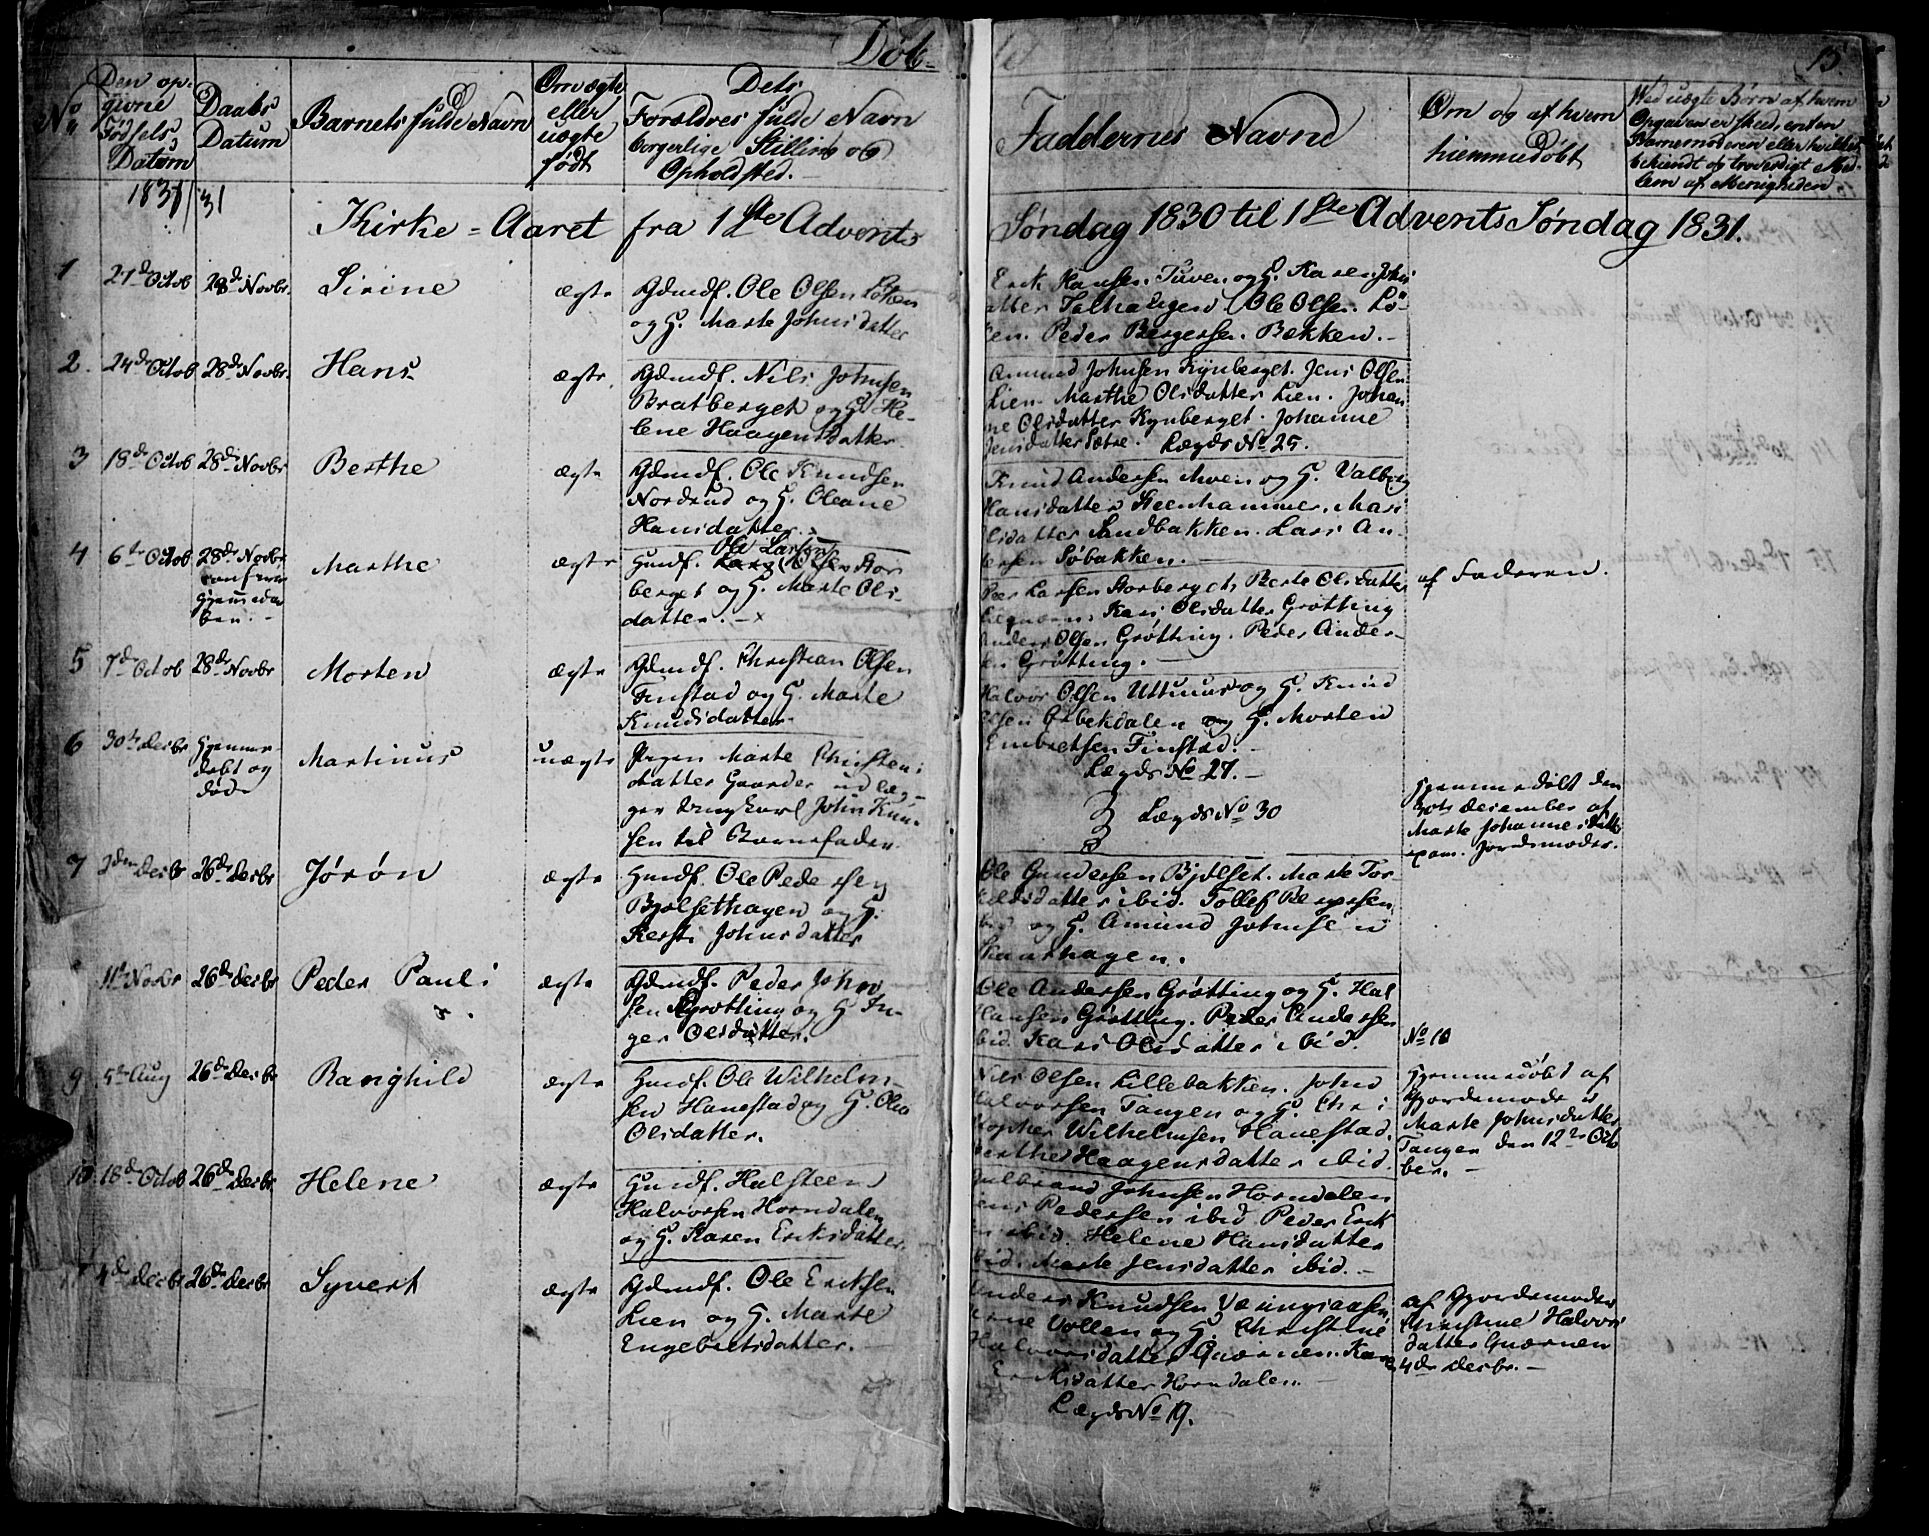 Døb-
15.
No
Den op-
givne
Fødsels
Datum
Daabs
Datum
Barnets fulde Navn
Om ægte
eller
uægte
født
Dets
Forældres fulde Navn
borgerlige Stilling og
Opholdsted.
Faddernes Navne
Om og af hvem
hiemmedøbt
Ved uægte Børn af hvem
Opgaven er skeed, enten
Barnemoderen eller
bekiendt og troverdigt
lem af Menigheden
183/31
Kirke-Aaret fra 1ste Advents
Søndag 1830 til 1ste Advents Søndag 1831.
1
27de Octob
28de Novbr.
Sirine
ægte
Gdmdf. Ole Olsen Løken
og H. Marte Johnsdatter
Erik Hansen Tuven og H. Karen Johns
datter Ole Olsen Lø-
ken. Peder Bergersen Bekken.-
2.
24de Octob
28de Novbr.
Hans
ægte
Gdmdf. Nils Johnsen
Bratberget og H. He-
lene Haagensdatter
Amund Johnsen Kynberget. Jens Olsen
Lien. Marthe Olsdatter Lien. Johan
ne Olsdatter Kynberget. Johanne
Jensdatter Sætre. Lægds No 25.
3
18de Octob
28de Novbr
Berthe
ægte
Gdmdf. Ole Knudsen
Nordrud og H. Oleane
Hansdatter.
Knud Andersen Moen og H. Valborg
Hansdatter Steenhammer. Mari
Olsdatter Sandbakken. Lars An-
dersen Søbakken.
4
6te Octob
28de Novbr
confirm
Hjemmedaa
ben.-
Marthe
ægte
Ole Larsen
Husmdf. Lars Olsen Stor
berget og H. Marte Ols-
datter.-x
Peer Larsen Storberget. Berte Olsdatter
Kari Olsdatter Grøtting
Anders Olsen Grøtting. Peder Ander-
sen Grøtting.
af Faderen.
5
7de Octob
28de Novbr
Morten
ægte
Gdmdf. Christian Olsen
Finstad og H. Marte
Knudsdatter
Halvor Olsen og H. Knud
Olsen og H. Morten
Embretsen Finstad.-
Lægds No 27.-
6
30te Decbr
Hjemme-
døbt og
døde
Martinus
uægte
Pigen Marte Christens
datter Gaarder udlæg-
ger Ungkarl John Knu-
sen til Barnefader.
Lægds No 30
Hjemmedøbt den
30te December af
Marte Johannesdatter
exam. Jordemoder.
7
Decbr
26de Decbr
Jørøn
ægte
Husmdf. Ole Pedersen
Bjølsethagen og H.
Kersti Johnsdatter
Ole Gundersen Bjølset. Marte Tor-
kildsdatter ibid. Tollef Bergersen
ibid og H. Amund Johnsen
Skaathagen.
11te Novbr
26de Decbr
Peder Pauli
ægte
Gdmdf. Peder John
sen Grøtting og H In-
ger Olsdatter.
Ole Andersen Grøtting og H. Hal
Hansen Grøtting. Peder Andersen
ibid. Kari Olsdatter ibid.
No 10
9
5te Aug
26de Decbr
Ranghild
ægte
Husmdf. Ole Wilhelm-
sen Hanestad og H. Olea
Olsdatter.
Nils Olsen Lillebakken. John
Halvorsen Tangen og H. Chri
stopher Wilhelmsen Hanestad.
Berthe Haagensdatter ibid.
Hjemmedøbt af
Gjordemoder
Marte Johnsdatter
Tangen den 12te Octo
ber.-
10
18de Octob
26de Decbr
Helene
ægte
Husmdf. Halsteen
Halvorsen Horndalen
og H. Karen Eriksdatter
Gulbrand Johnsen Horndalen
Jens Pedersen ibid. Peder Erik
sen ibid. Helene Hansdatter
ibid. Marte Jensdatter ibid.-
4de Decbr
26de Decbr
Syvert
ægte
Gdmdf. Ole Eriksen
Lien og H. Marte
Engebretsdatter.
Anders Knudsen
Vollen og H. Christine
Halvorsdatter Quærnen. Kari
Eriksdatter Horndalen.
Lægds No 19.
af Gjordemoder
Christine Halvors
datter Quærnen
4de Decbr.-